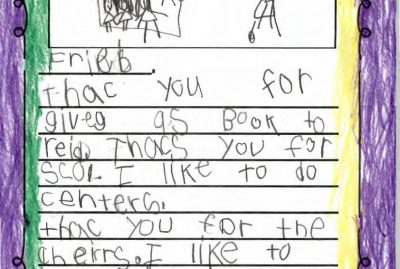 Frieb.
thac you for
giveg as Book to
reid. Thacs you for
scol. I like to do
centers.
thac you for the
cheirrs. I like to